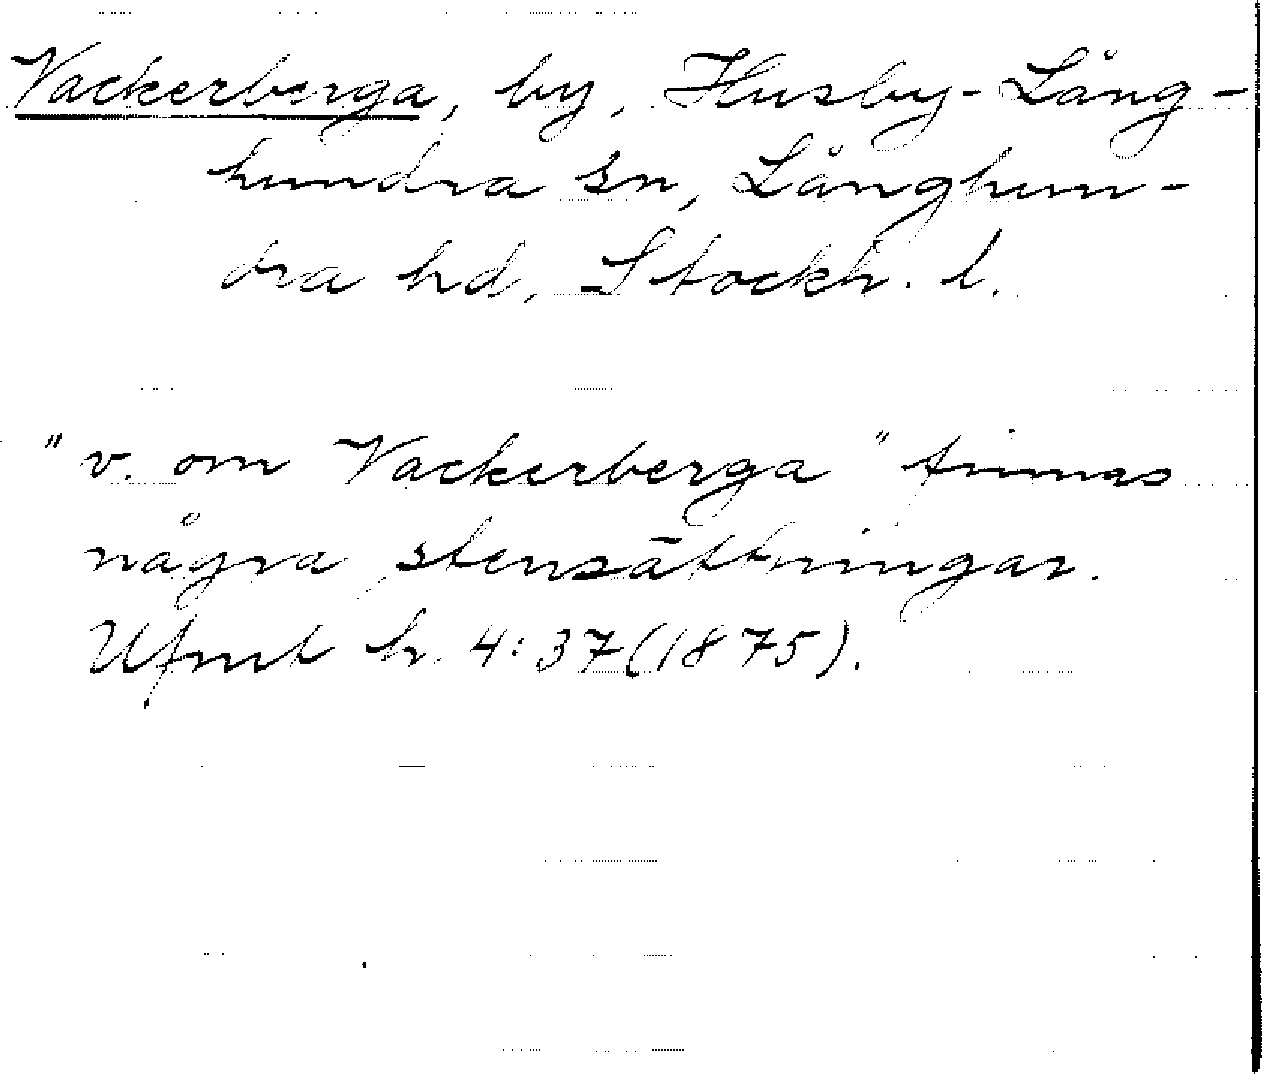 Vackerberga, by, Husby-Lång-
hundra sn, Långhun-
dra hd, Stockh. l.
"v. om Vackerberga" finnas
några stensättningar.
Ufmt h. 4:37(1875).